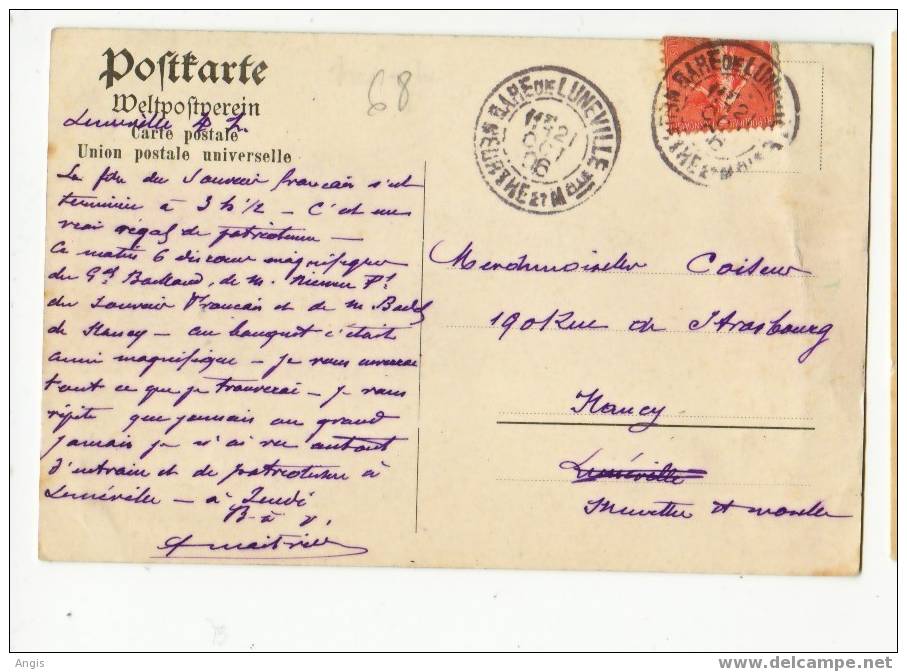 Postkarte
Weltpostverein
Carte postale
Union postale universelle
68
GARE DE LUNEVILLE
MEURTHE ET M LLE
GARE DE LUNEVILLE
MEURTHE ET M LLE
Lunéville
La fête du Souvenir français s'est
terminée à 3 h 1/2 – C'est un
vrai régal de patriotisme –
Ce matin 6 discours magnifiques
du Gal de M. Pt
du Souvenir Français et de M.
de Nancy – au banquet c'était
aussi magnifique – Je vous enverrai
tout ce que je trouverai – Je vous
répète que jamais au grand
jamais je n'ai vu autant
d'entrain et de patriotisme à
Lunéville – à Jeudi
B. à v.
Mesdemoiselles
190 Rue de Strasbourg
Nancy
Lunéville
Meurthe et Moselle
Angis
www.delcampe.net